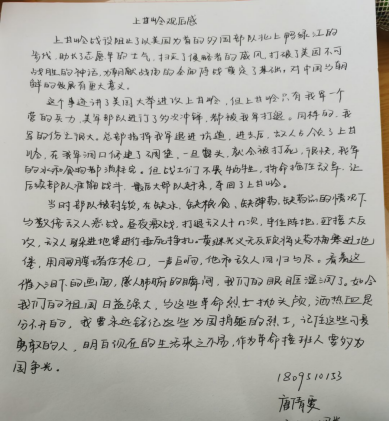 上甘岭观后感
上甘岭战役阻止了以美国为首的多国部队北上鸭绿江的
步伐，助长了志愿军的士气，扫灭了侵略者的威风，打破了美国不可
战胜的神话，为朝鲜战场的全面停战奠定了基础，对中国与朝
鲜的发展有重大意义。
这个事迹讲了美国大举进攻上甘岭，但上甘岭只有我军一个
营的兵力，美军部队进行了多次冲锋，都被我军打退。同样的，我
军的伤亡很大。总部指挥我军退进坑道，进去后，敌人占领了上甘
岭，在我军洞口修建了碉堡，一旦露头，就会被打死，很快，我军
的水和食物都消耗完。但战士们不畏牺牲，拼命拖住敌军，让
后续部队准备战斗，最后大部队赶来，夺回了上甘岭。
当时部队被封锁，在缺水、缺粮食、缺弹药、缺药品的情况下
与数倍敌人奋战。昼夜激战，打退敌人十几次，牢住阵地，迎接大反
攻，敌人躲进地堡进行垂死挣扎。黄继光义无反顾将火药桶塞进地
堡，用胸膛堵在枪口，一声巨响，他和敌人同归与尽。看着这
催人泪下的画面，感人肺腑的瞬间，我们的眼眶湿润了。如今
我们的祖国日益强大，与这些革命烈士抛头颅，洒热血是
分不开的，我要永远铭记这些为国捐躯的烈士，记住这些可爱
勇敢的人，明白现在的生活来之不易，作为革命接班人要多为
国争光。
1809510153